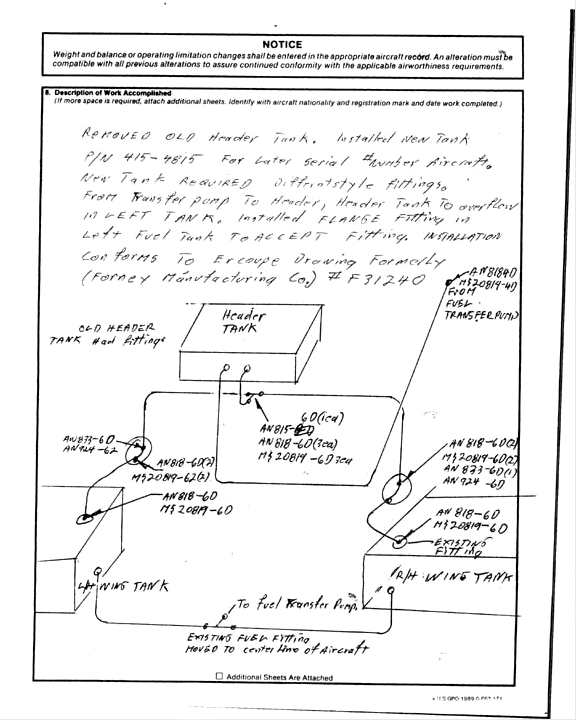 NOTICE
Weight and balance or operating limitation changes shall be entered in the appropriate aircraft record. An alteration must be
compatible with all previous alterations to assure continued conformity with the applicable airworthiness requirements.
8. Description of Work Accomplished
(If more space is required, attach additional sheets. Identify with aircraft nationality and registration mark and date work completed.)
Removed old Header Tank. Installed New Tank
P/N 415-4815 For Later Serial #Number Aircraft.
New Tank Required Diffrintstyle fittings.
From Transfer pump To Header, Header Tank To overflow
in LEFT TANK. Installed FLANGE Fitting in
Left Fuel Tank To ACCEPT Fitting. INSTALLATION
Conforms To Ercoupe Drawing Formerly
(Forney Manufacturing Co.) # F31240
AN818-4D
MS20819-4D
FROM
FUEL
TRANSFER PUMP
Header
TANK
OLD HEADER
TANK Had fittings
6D(1ea)
AN815-
AN818-6D(3ea)
MS20819-6D 3ea
AN833-6D
AN924-62
AN818-6D(2)
MS20819-62(2)
AN818-6D
MS20819-6D
AN818-6D(2)
MS20819-6D(2)
AN 833-6D(1)
AN924-6D
AN 818-6D
MS20819-6D
EXISTING
Fitting
L/H WING TANK
R/H WING TANK
To Fuel Transfer Pump
EXISTING FUEL Fitting
MOVED TO center line of Aircraft
Additional Sheets Are Attached